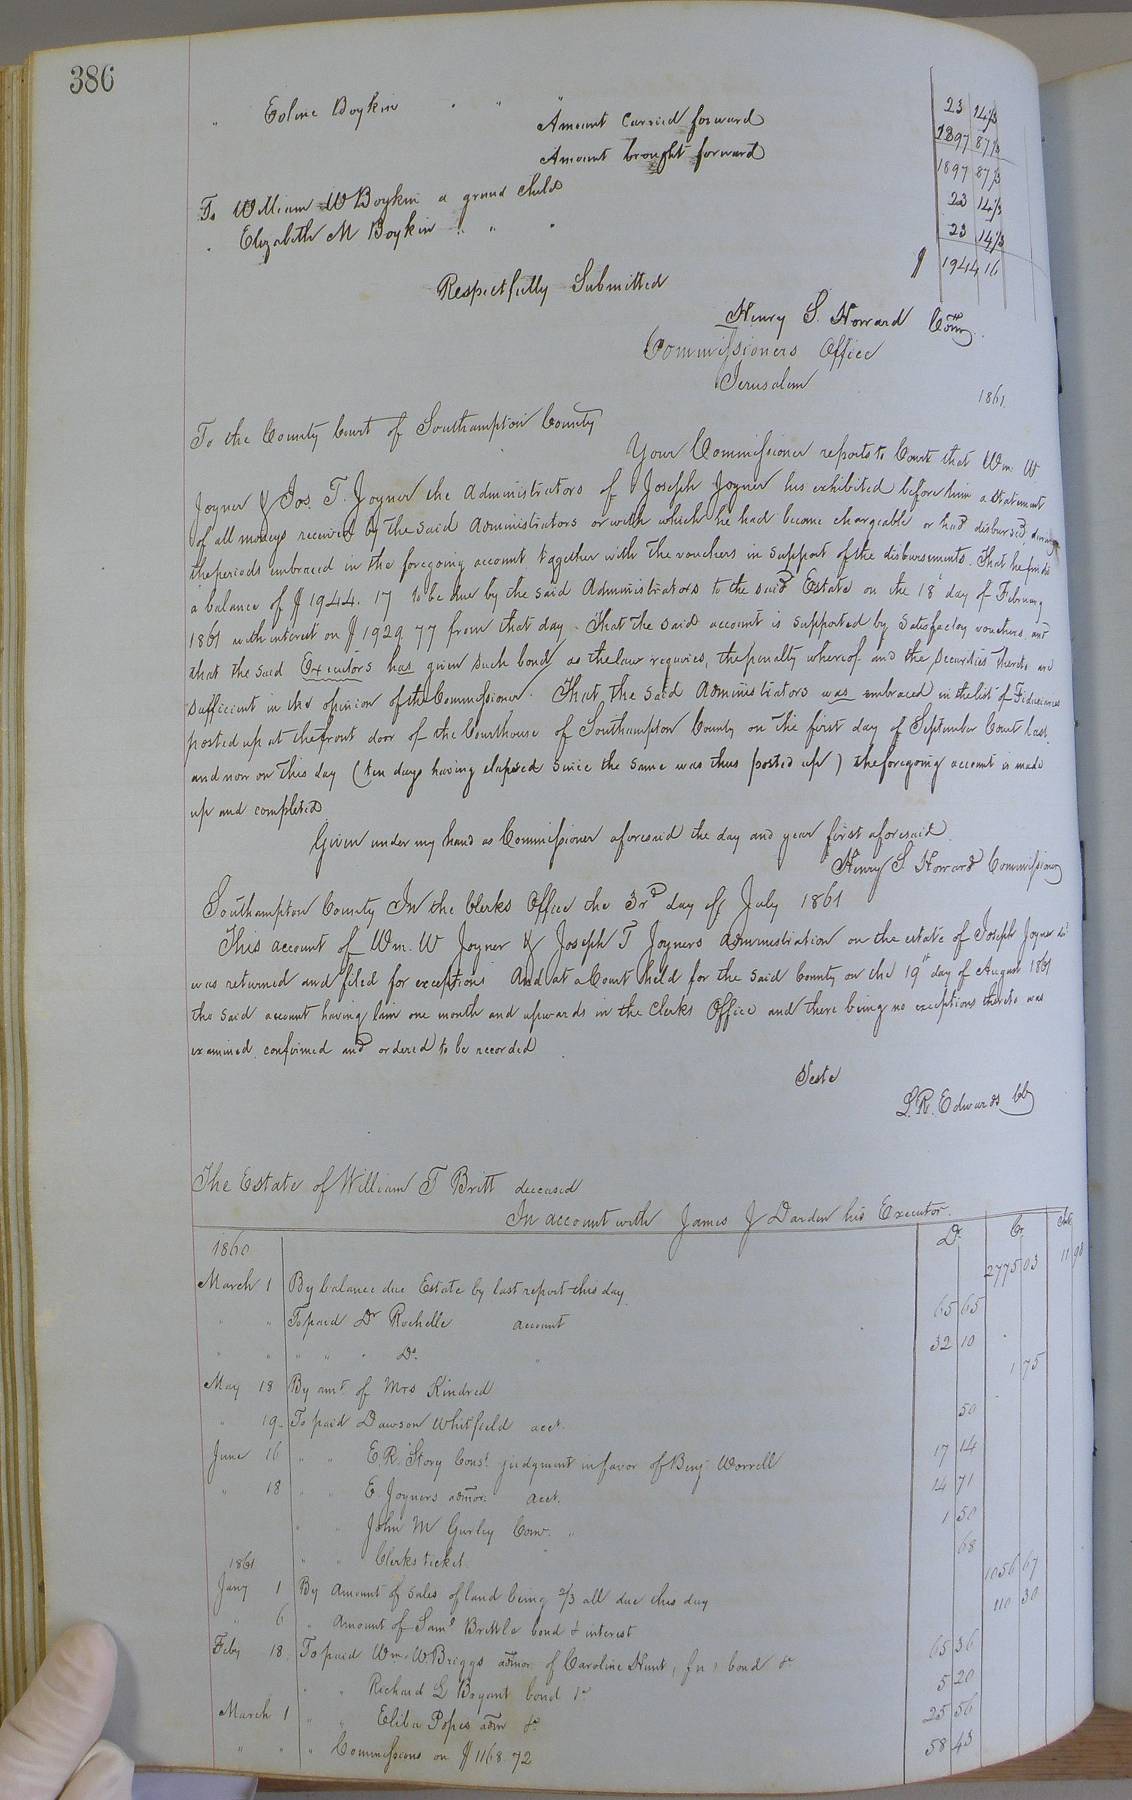 386
" Eoline Boykin " " " 23 14⅓
Amount carried forward 1897 87⅓
Amount brought forward 1897 87⅓
To William W Boykin a grand child 23 14⅓
" Elizabeth M Boykin " " " 23 14⅓
$ 1944 16
Respectfully Submitted
Henry S. Howard Comr
Commissioners Office
Jerusalem 1861.
To the County Court of Southampton County
Your Commissioner reports to Court that Wm. W
Joyner & Jos. T. Joyner the Administrators of Joseph Joyner has exhibited before him a Statement
of all moneys received by the said Administrators or with which he had become chargeable or had disbursed during
the periods embraced in the foregoing account together with the vouchers in support of the disbursements. That he finds
a balance of $1944.17 to be due by the said Administrators to the said Estate on the 18th day of February
1861 with interest on $1929 77 from that day. That the said account is supported by satisfactory vouchers and
that the said Executors has given such bond as the law requires, the penalty whereof and the securities thereto are
sufficient in the opinion of the Commissioner. That the said Administrators was embraced in the list of Fiduciaries
posted up at the front door of the Courthouse of Southampton County on the first day of September Court last
and now on this day (ten days having elapsed since the same was thus posted up) the foregoing account is made
up and completed
Given under my hand as Commissioner aforesaid the day and year first aforesaid.
Henry S. Howard Commissioner
Southampton County In the Clerks Office the 3rd day of July 1861
This account of Wm. W Joyner & Joseph T Joyners administration on the estate of Joseph Joyner decd
was returned and filed for exceptions And at a Court held for the said County on the 19th day of August 1861
the said account having lain one month and upwards in the Clerks Office and there being no exceptions thereto was
examined, confirmed and ordered to be recorded
Teste
L.R. Edwards Clk
The Estate of William T Britt deceased
In account with James J Darden his Executor.
1860 Dr. Cr. Int.
March 1 By balance due Estate by last report this day 2775 03 11 90
" " To paid Dr Rochelle account 65 65
" " " " " Do. " 32 10
May 18 By amt of Mrs Kindred 1 75
" 19 To paid Dawson Whitfield acct. 50
June 16 " " E. R. Story Const. judgment in favor of Benj. Worrell 17 14
" 18 " " E. Joyners admor. acct. 14 71
" " John M Gurley Comr. " 1 50
1861 " " Clerks ticket 68
Jany 1 By Amount of sales of land being 2/3 all due this day 1056 67
" 6 " Amount of Saml Brittle bond & interest 110 30
Feby 18. To paid Wm. W. Briggs admor of Caroline Nunt, fn; bond &c 65 36
" " Richard L Bryant bond &c 5 20
March 1 " " Eliba Popes admr &c 25 56
" " " Commissions on $1168.72 58 43